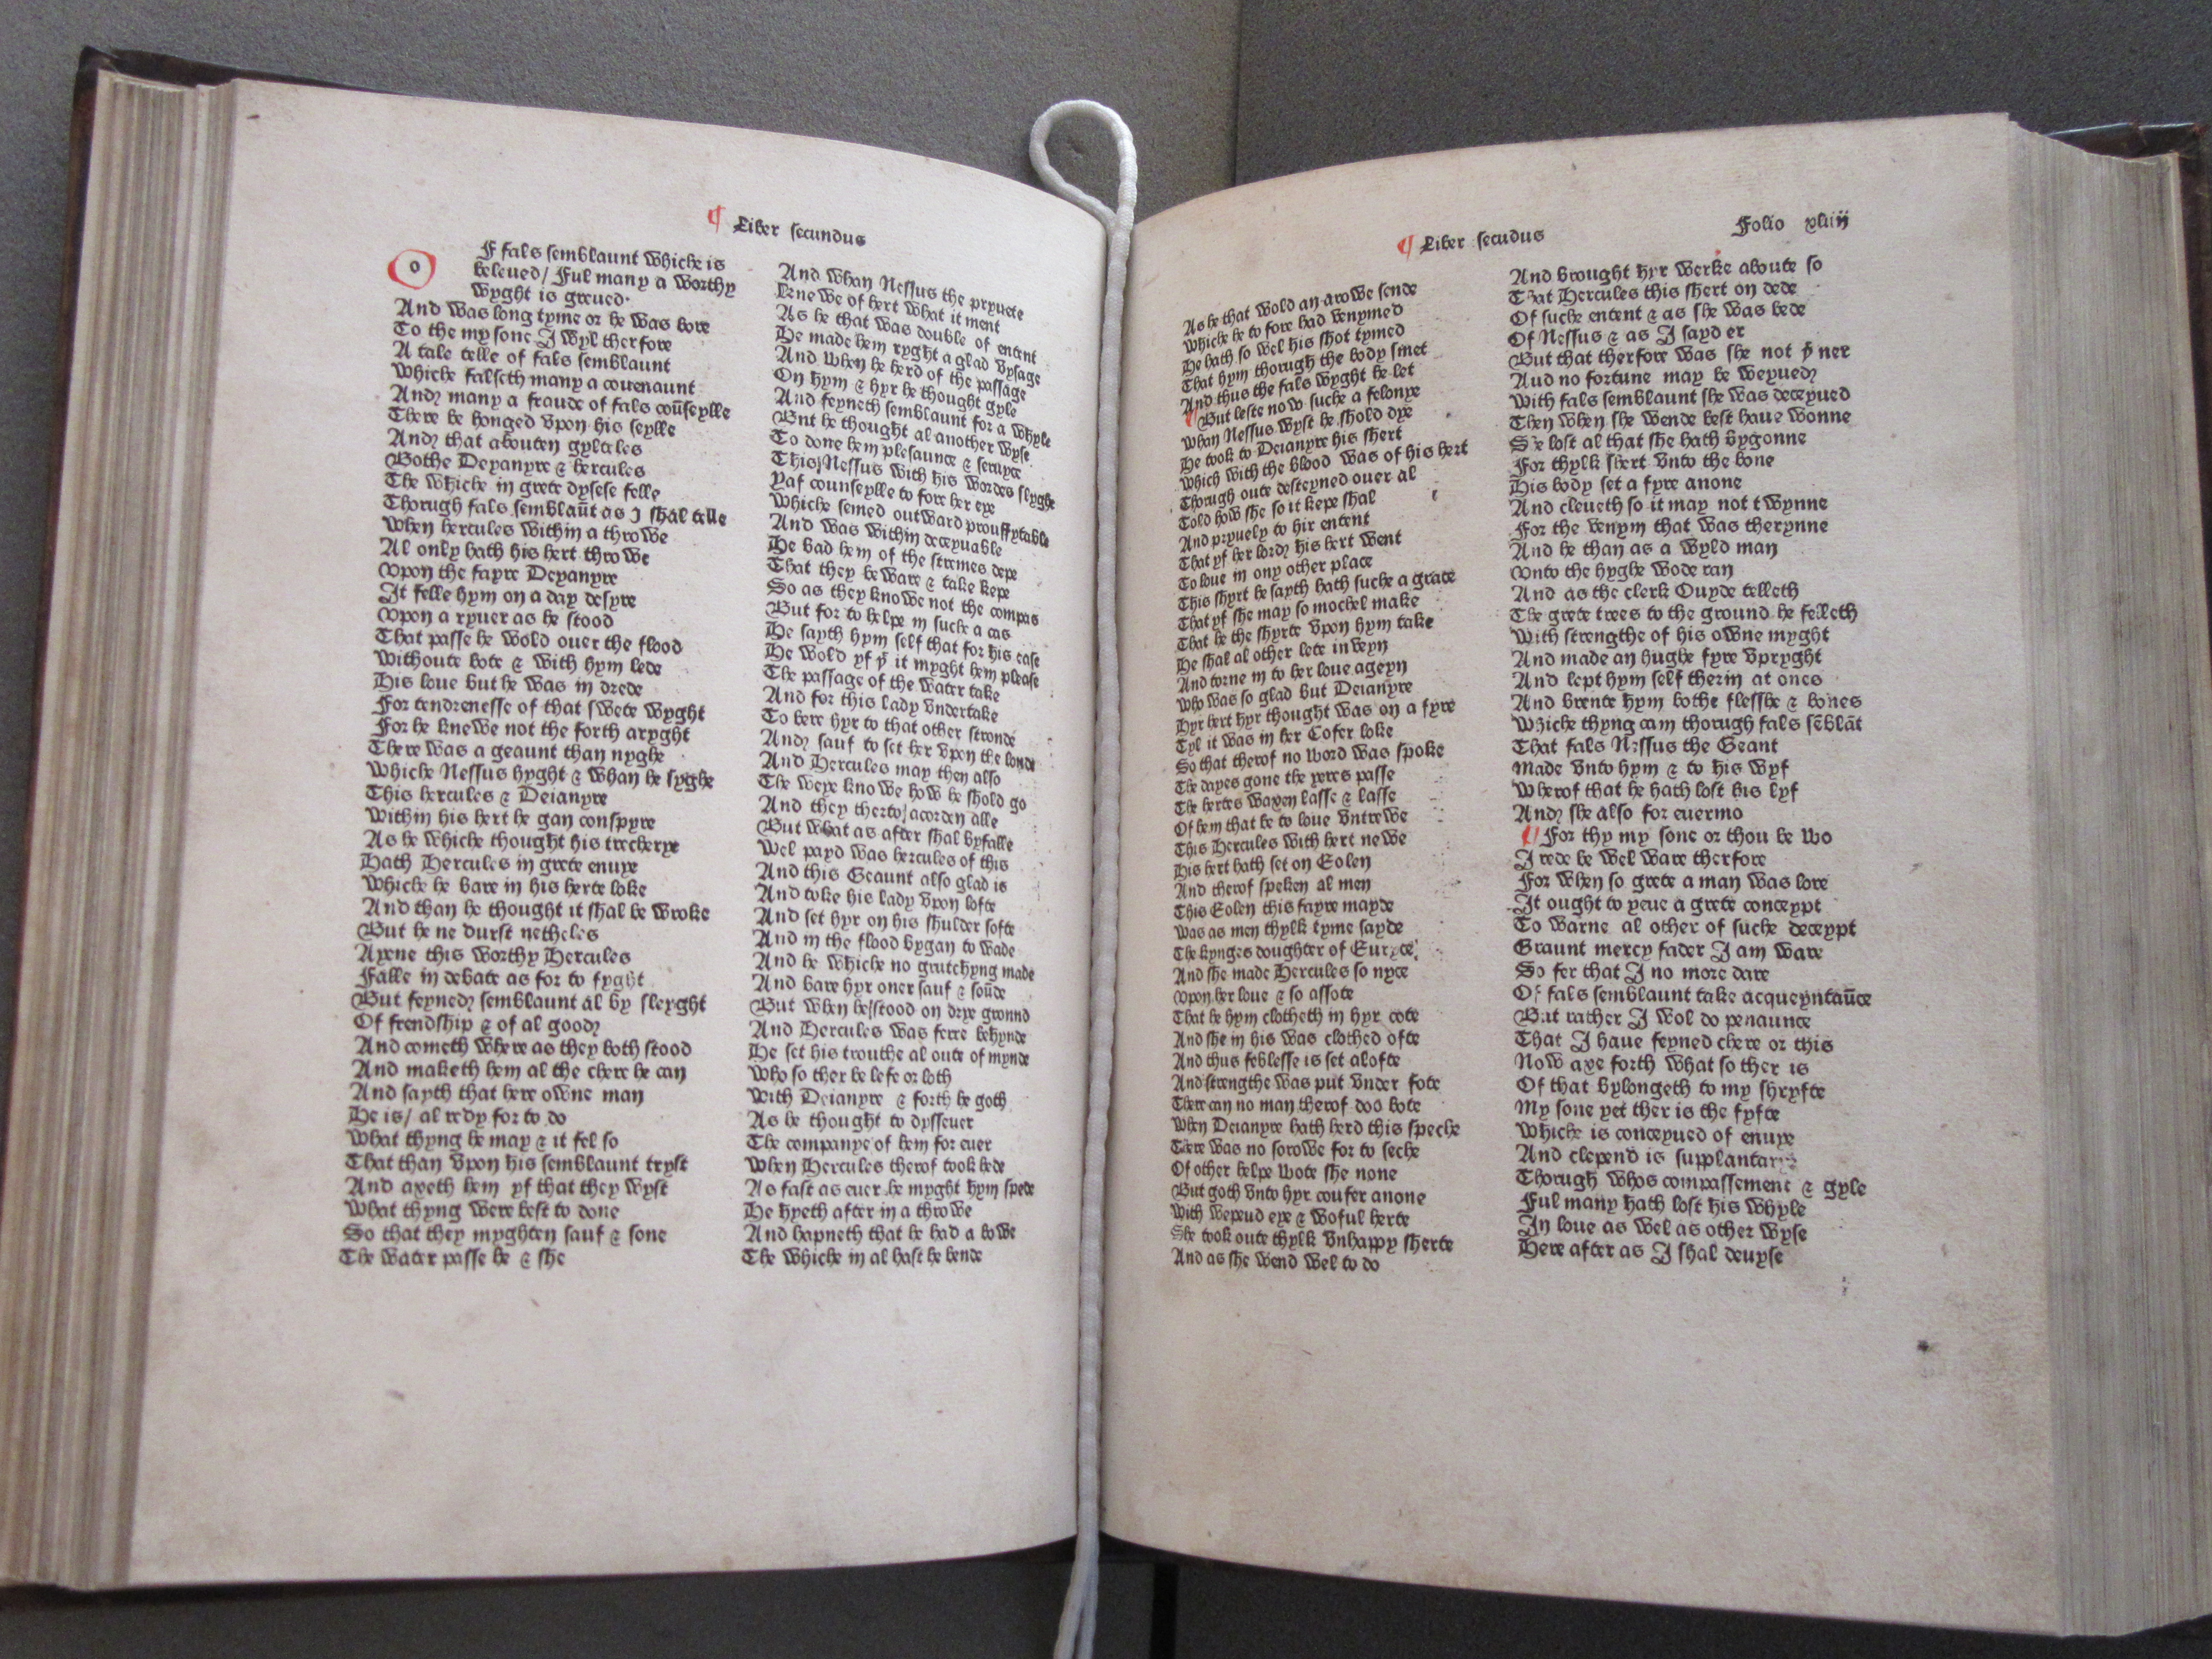 ¶ Liber secundus
o F fals semblaunt whiche is
beleued/ Ful many a worthy
wyght is greued·
And was long tyme or he was bore
To the my sone I wyl therfore
A tale telle of fals semblaunt
Whiche falseth many a couenaunt
And many a fraude of fals coūseylle
There be honged vpon his seylle
And that abouten gyltles
Bothe Deyanyre & hercules
The whiche in grete dysese felle
Thorugh fals semblaūt as I shal telle
When hercules within a throwe
Al only hath his hert throwe
Vpon the fayre Deyanyre
It felle hym on a day desyre
Vpon a ryuer as he stood
That passe he wold ouer the flood
Withoute bote & with hym lede
His loue but he was in drede
For tendrenesse of that swete wyght
For he knewe not the forth aryght
There was a geaunt than nyghe
Whiche Nessus hyght & whan he syghe
This hercules & Deianyre
Within his hert he gan conspyre
As he whiche thought his trecherye
Hath Hercules in grete enuye
Whiche he bare in his herte loke
And than he thought it shal be wroke
But he ne durst netheles
Ayene this worthy Hercules
Falle in debate as for to fyght
But feyned semblaunt al by sleyght
Of frendship & of al good
And cometh where as they both stood
And maketh hem al the chere he can
And sayth that here owne man
He is/ al redy for to do
What thyng he may & it fel so
That than vpon his semblaunt tryst
And axeth hem yf that they wyst
What thyng were best to done
So that they myghten sauf & sone
The water passe he & she
And whan Nessus the pryuete
Knewe of hert what it ment
As he that was double of entent
He made hem ryght a glad vysage
And when he herd of the passage
On hym & hyr he thought gyle
And feyneth semblaunt for a whyle
But he thought al another wyse
To done hem plesaunce & seruyce
This Nessus with his wordes slyghe
Yaf counseylle to fore her eye
Whiche semed outward prouffytable
And was within deceyuable
He bad hem of the stremes depe
That they beware & take kepe
So as they knowe not the compas
But for to helpe in suche a cas
He sayth hym self that for his ease
He wold yf ꝥ it myght hem please
The passage of the water take
And for this lady vndertake
To bere hyr to that other stronde
And sauf to set her vpon the londe
And Hercules may then also
The weye knowe how he shold go
And they therto acorden alle
But what as after shal byfalle
Wel payd was hercules of this
And this Geaunt also glad is
And toke his lady vpon lofte
And set hyr on his shulder softe
And in the flood bygan to wade
And he whiche no grutchyng made
And bare hyr oner sauf & soūde
But when he stood on drye gronnd
And Hercules was ferre behynde
He set his trouthe al oute of mynde
Who so ther be lefe or loth
With Deianyre & forth he goth
As he thought to dysseuer
The companye of hem for euer
When Hercules therof took hede
As fast as euer he myght hym spede
He hyeth after in a throwe
And hapneth that he had a bowe
The whiche in al hast he bende
¶ Liber secudus
Folio xliiij
As he that wold an arowe sende
Whiche he to fore had venymed
He hath so wel his shot tymed
That hym thorough the body smet
And thus the fals wyght he let
¶ But leste now suche a felonye
Whan Nessus wyst he shold dye
He took to Deianyre his shert
Which with the blood was of his hert
Thorugh oute desteyned ouer al
Told how she so it kepe shal
And pryuely to hir entent
That yf her lord his hert went
To loue in ony other place
This shyrt he sayth hath suche a grace
That yf she may so mochel make
That he the shyrte vpon hym take
He shal al other lete in veyn
And torne in to her loue ageyn
Who was so glad but Deianyre
Hyr hert hyr thought was on a fyre
Tyl it was in her Cofer loke
So that therof no word was spoke
The dayes gone the yeres passe
The hertes waxen lasse & lasse
Of hem that be to loue vntrewe
This Hercules with hert newe
His hert hath set on Eolen
And therof speken al men
This Eolen this fayre mayde
Was as men thylk tyme sayde
The kynges doughter of Euryce
And she made Hercules so nyce
Vpon her loue & so assote
That he hym clotheth in hyr cote
And she in his was clothed ofte
And thus feblesse is set alofte
And strengthe was put vnder fote
There can no man therof doo bote
When Deianyre hath herd this speche
There was no sorowe for to seche
Of other helpe wote she none
But goth vnto hyr coufer anone
With wepend eye & woful herte
She took oute thylk vnhappy sherte
And as she wend wel to do
And brought hyr werke aboute so
That Hercules this shert on dede
Of suche entent & as she was bede
Of Nessus & as I sayd er
But that therfore was she not ꝥ ner
Aud no fortune may be weyued
With fals semblaunt she was deceyued
Then when she wende best haue wonne
She lost al that she hath bygonne
For thylk shert vnto the bone
His body set a fyre anone
And cleueth so it may not twynne
For the venym that was therynne
And he than as a wyld man
Vnto the hyghe wode ran
And as the clerk Ouyde telleth
The grete trees to the ground he felleth
With strengthe of his owne myght
And made an hughe fyre vpryght
And lept hym self therin at ones
And brente hym bothe flesshe & bones
Whiche thyng cam thorugh fals sēblāt
That fals Nessus the Geant
Made vnto hym & to his wyf
Wherof that he hath lost his lyf
And she also for euermo
¶ For thy my sone or thou be wo
I rede be wel ware therfore
For when so grete a man was lore
It ought to yeue a grete conceypt
To warne al other of suche deceypt
Graunt mercy fader I am ware
So fer that I no more dare
Of fals semblaunt take acqueyntaūce
But rather I wol do penaunce
That I haue feyned chere or this
Now axe forth what so ther is
Of that bylongeth to my shryfte
My sone yet ther is the fyfte
Whiche is conceyued of enuye
And clepend is supplantarye
Thorugh whos compassement & gyle
Ful many hath lost his whyle
In loue as wel as other wyse
Here after as I shal deuyse